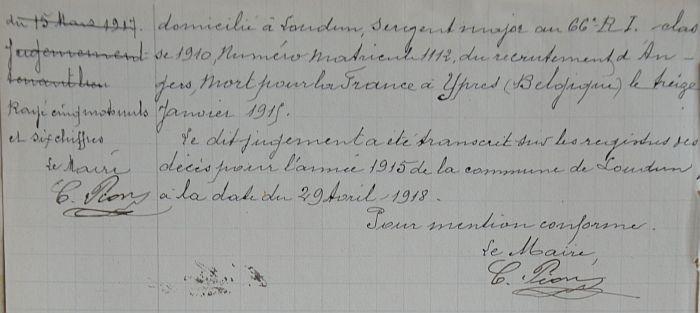 du 15 Mars 1917.
Jugement
tenant lieu
Rayé cinq mots nuls
et six chiffres
Le Maire
C. Pion
domicilié à Loudun, sergent major au 66e R I. clas
se 1910, Numéro matricule 1112, du recrutement d'An-
gers, Mort pour la France à Ypres (Belgique) le treize
Janvier 1915.
Le dit jugement a été transcrit sur les registres des
décès pour l'année 1915 de la commune de Loudun
à la date du 29 Avril 1918.
Pour mention conforme.
Le Maire,
C. Pion